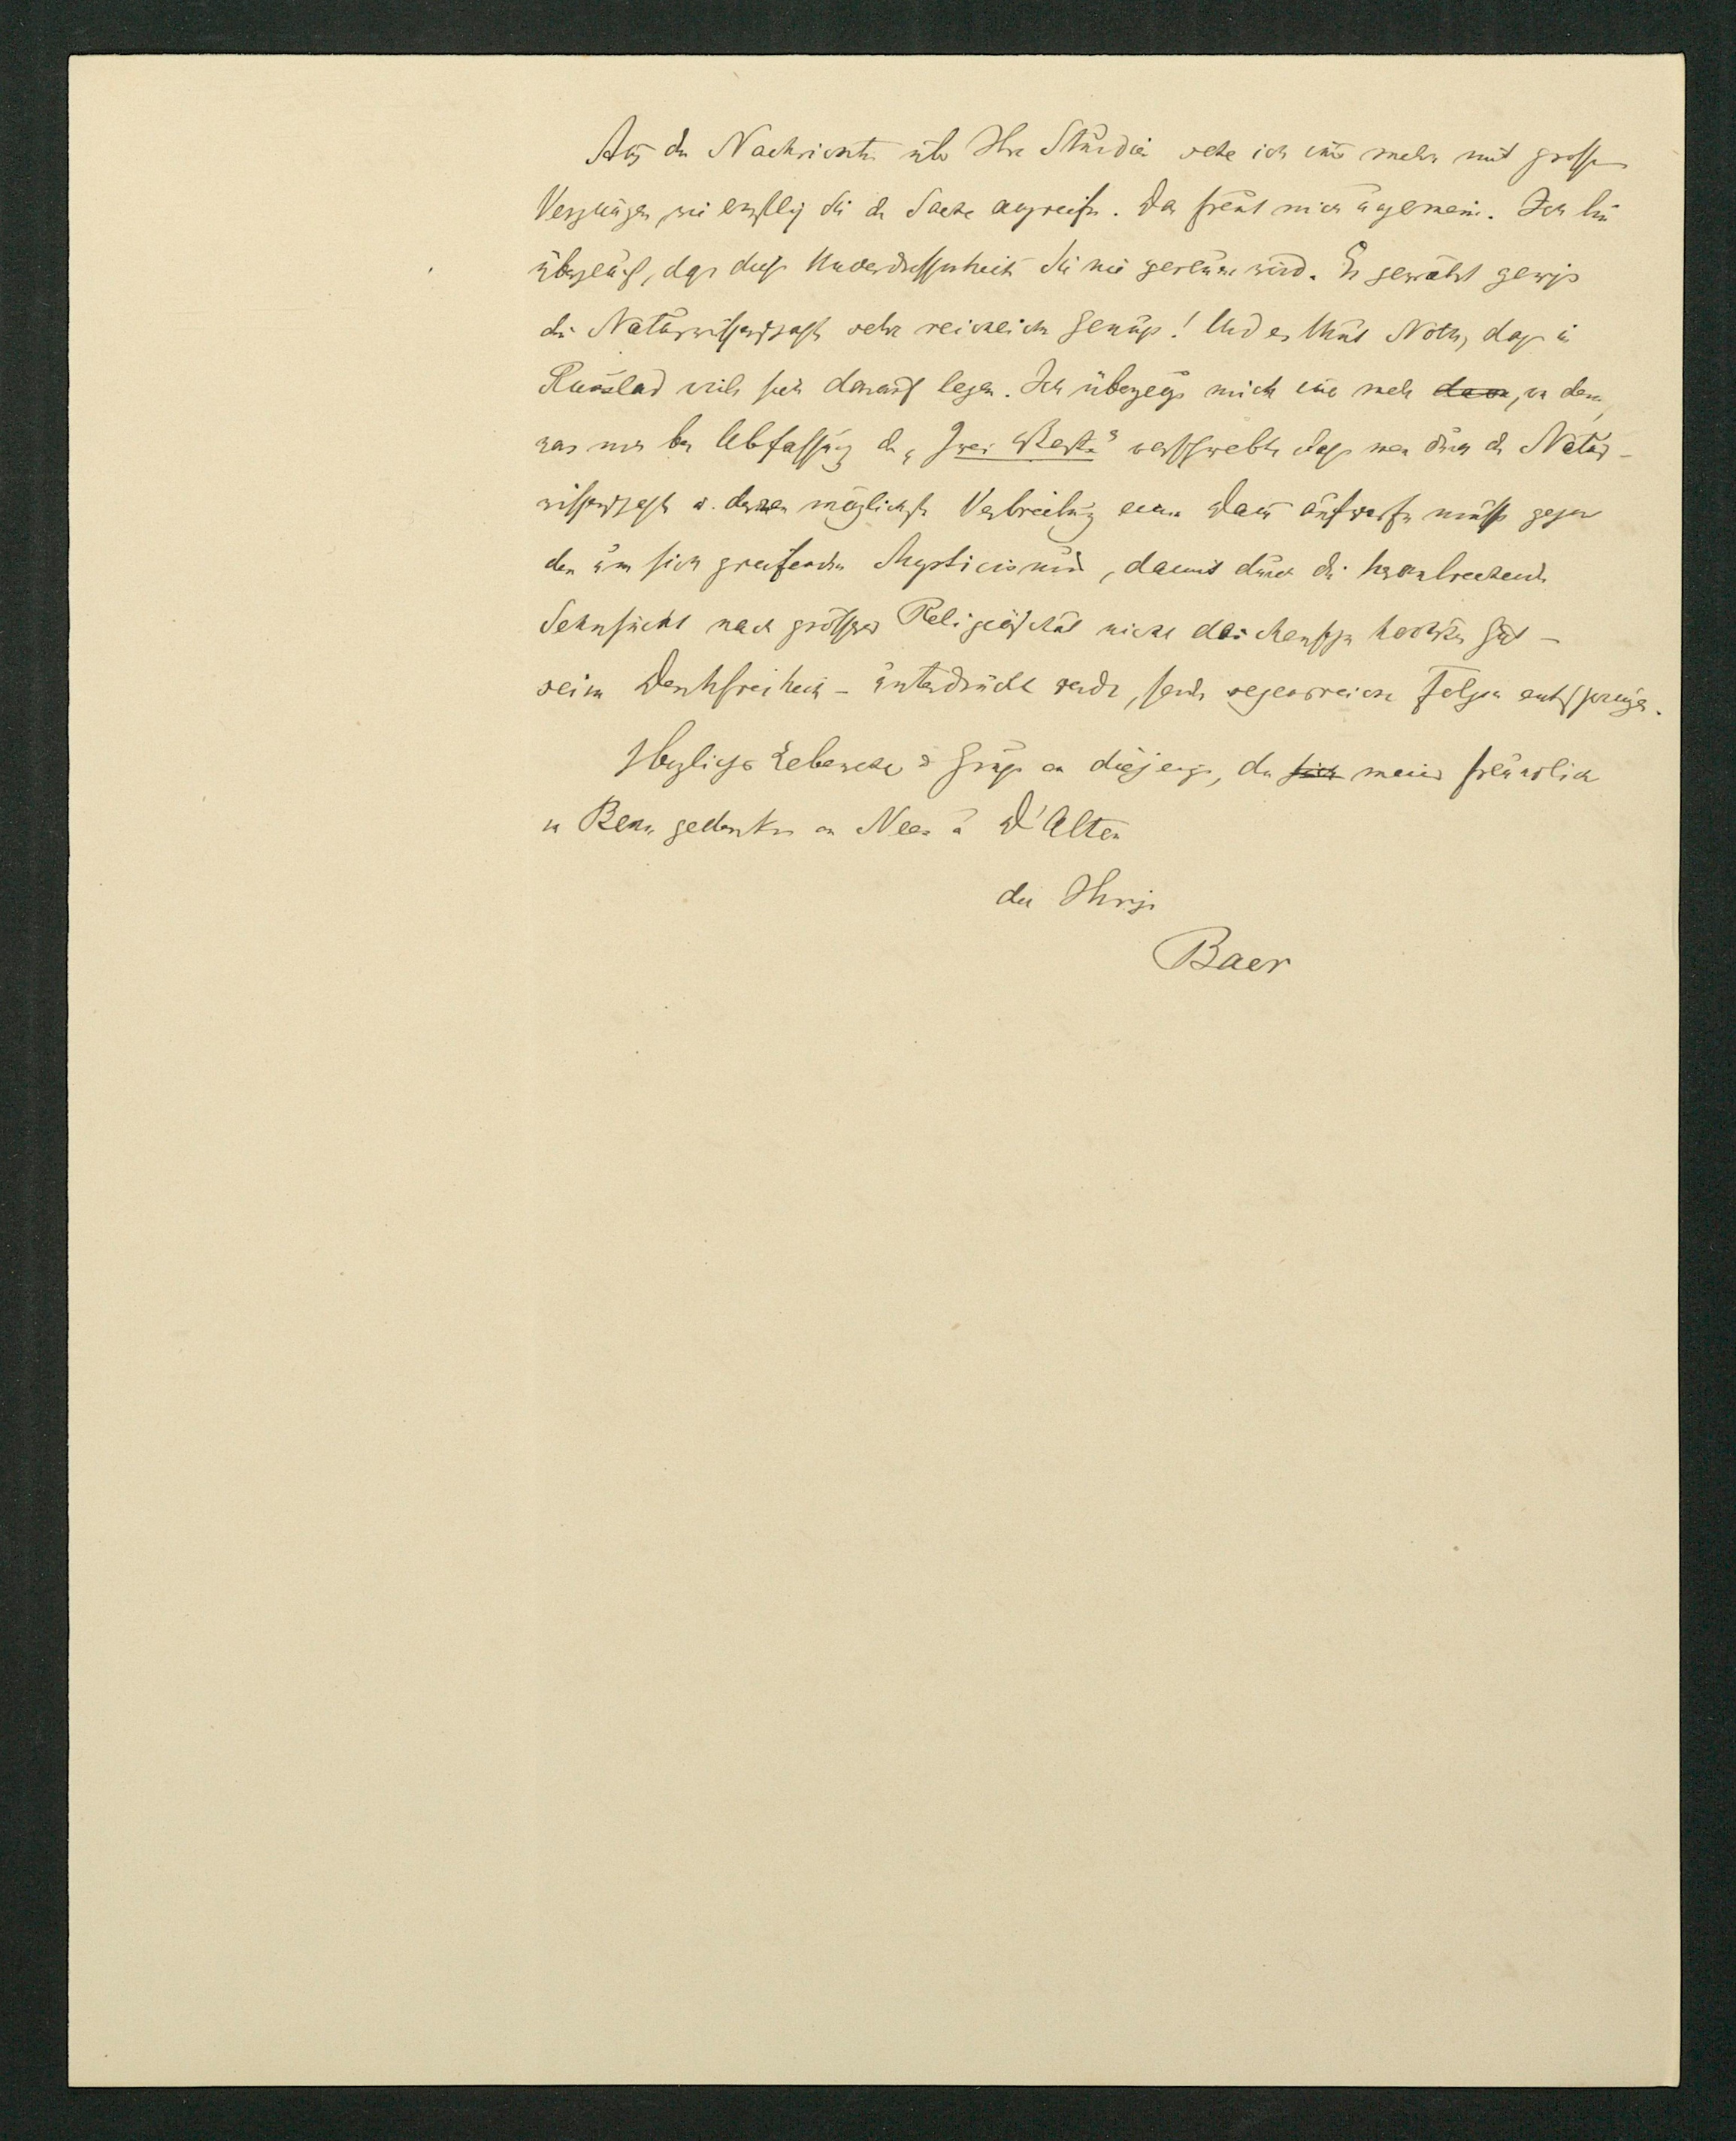 Aus den Nachrichten über Ihre Studien sehe ich immer mehr mit grossem
Vergnügen, wie ernstlich Sie die Sache angreifen. Das freut mich ungemein. Ich bin
überzeugt, dass diese Unverdrossenheit Sie nie gereuen wird. Es gewährt gewiss
die Naturwissenschaft sehr reichlich Genuss! Und es thut Noth, dass in
Russland viele sich darauf legen. Ich überzeuge mich immer mehr davon, von dem,
was mir bei Abfassung der „Zwei Worte“ vorschwebte, dass man durch die Natur-
wissenschaft u. deren möglichste Verbreitung einen Damm aufwerfen müsse gegen
den um sich greifenden Mysticismus, damit durch die hereinbrechende
Sehnsucht nach grösserer Religiosität nicht des Menschen höchstes Gut –
seine Denkfreiheit – unterdrückt werde, sondern segensreiche Folgen entspringen.
Herzliches Lebewohl u Grüsse an diejenigen, die sich meiner freundlich
in Bonn gedenken an Nees u D'Alton
der Ihrige
Baer